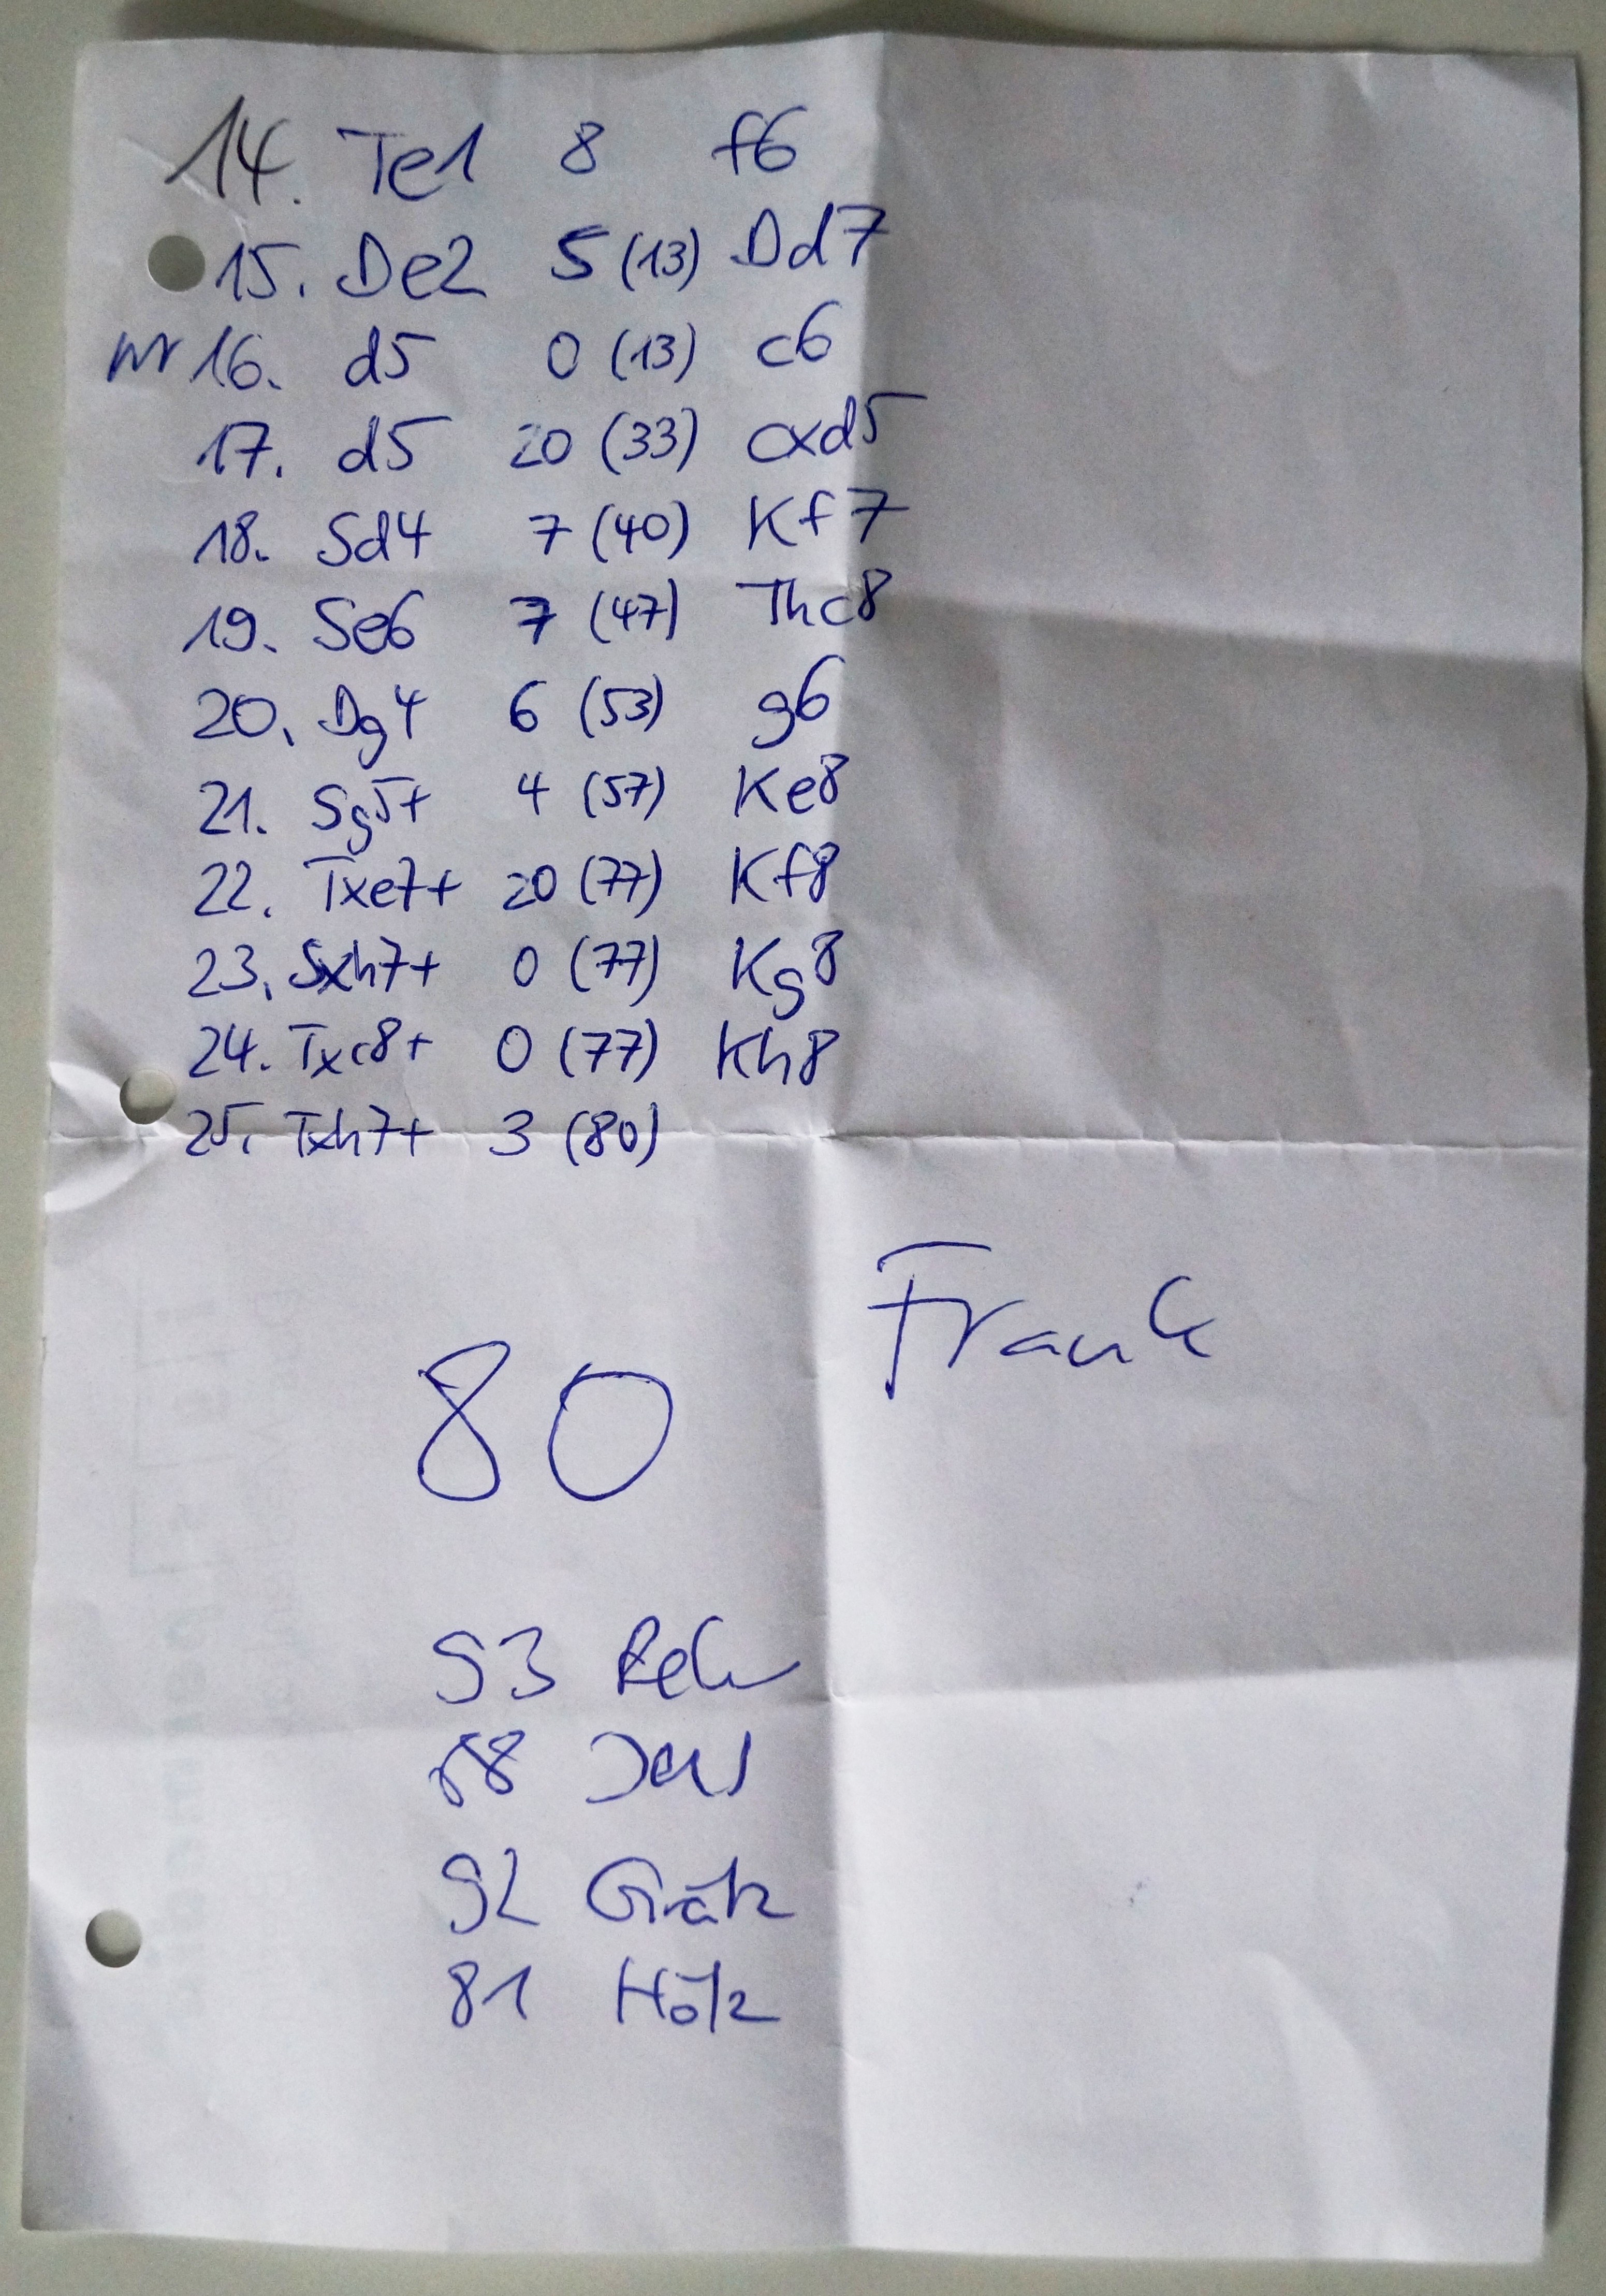 14. Te1 8 f6
15. De2 5 (13) Dd7
16. d5 0 (13) c6
17. d5 20 (33) cxd5
18. Sd4 7 (40) Kf7
19. Se6 7 (47) Thc8
20. Dg4 6 (53) g6
21. Sg5+ 4 (57) Ke8
22. Txe7+ 20 (77) Kf8
23. Sxh7+ 0 (77) Kg8
24. Txc8+ 0 (77) Kh8
25. Txh7+ 3 (80)
Frank
80
93
88
92 Grätz
81 Hölz